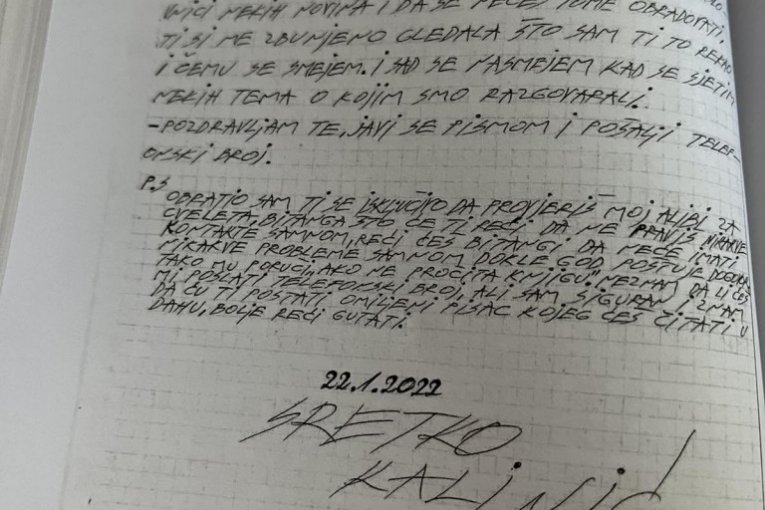 UNICI NEKIH NOVINA I DA SE NEĆEŠ TOME OBRADOVATI,
TI SI ME ZBUNJENO GLEDALA ŠTO SAM TI TO REKAO
I ČEMU SE SMEJEM. I SAD SE NASMEJEM KAD SE SJETIM
NEKIH TEMA O KOJIM SMO RAZGOVARALI.
-POZDRAVLJAM TE, JAVI SE PISMOM I POŠALJI TELEF-
ONSKI BROJ.
P.S
OBRATIO SAM TI SE ISKLJUČIVO DA PROVJERIŠ MOJ ALIBI ZA
CVELETA, BITANGA ŠTO ĆE TI REĆI DA NE PRAVIŠ NIKAKVE
KONTAKTE SAMNOM, REĆI ĆEŠ BITANGI DA NEĆE IMATI
NIKAKVE PROBLEME SAMNOM DOKLE GOD POŠTUJE DOGOVOR
TAKO MU PORUČI, AKO NE PROČITA KNJIGU." NEZNAM DA LI ĆEŠ
MI POSLATI TELEFONSKI BROJ, ALI SAM SIGURAN I ZNAM
DA ĆU TI POSTATI OMILJENI PISAC KOJEG ĆEŠ ČITATI U
DAHU, BOLJE REĆI GUTATI.
22.1.2022
SRETKO
KALINIĆ